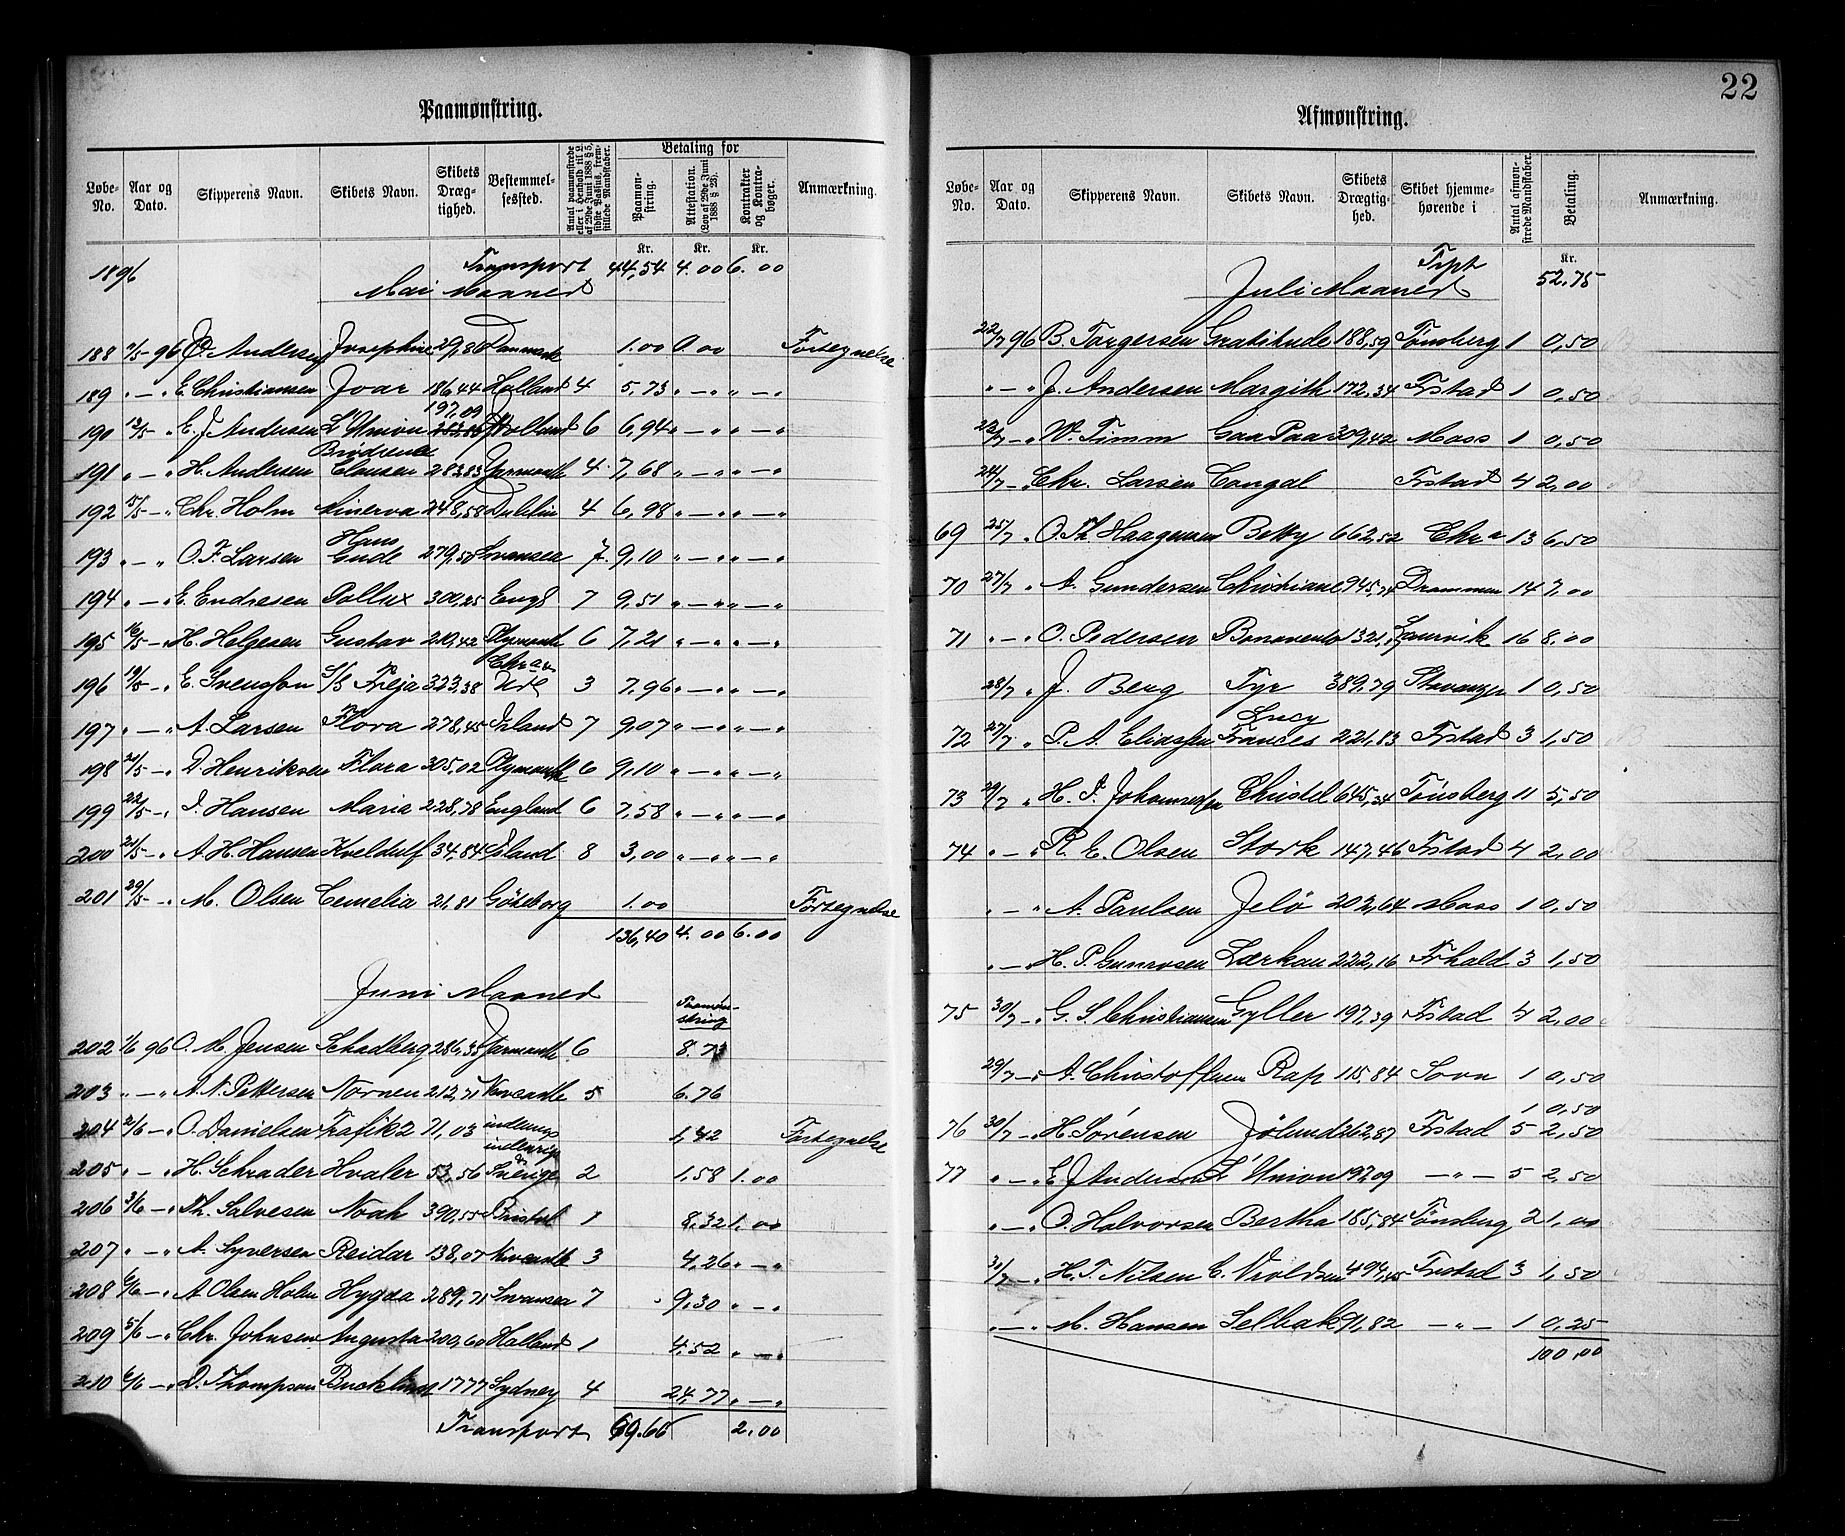 22
Paamønstring.
Løbe-No. Aar og Dato. Skipperens Navn. Skibets Navn. Skibets Dræg-tighed. Bestemmel-sessted. Antal paamønstrede eller i Henhold til L. af 29de Juni 1888 § 5, sidste Passus, frem-stillede Mandskaber. Betaling for Paamøn-string. Attestation. (Lov af 29de Juni 1888 § 23). Kontrakter og Kontra-bøger. Anmærkning.
Kr. Kr. Kr.
1896 Transport 44,54 4.00 6.00
Mai Maaned
188 96 Andersen Josephine 29,86 Danmark 1.00 0.00 Fortegnelse
189 " — " E. Christiansen Joar 186,44 Holland 4 5,73 " — " " — "
197,09
190 12/5 — " E. J. Andersen L'Union Holland 6 6,94 " — " " — "
Brødrene
191 " — " H. Andersen Clausen 283,83 Yarmouth 4 7,68 " — " " — "
192 15/5 — " Chr. Holm Minerva 248,58 Dublin 4 6,98 " — " " — "
Hans
193 " — " O. F. Larsen Gude 279,50 Swansea 7 9,10 " — " " — "
194 " — " E. Endresen Pollux 300,25 Engl 7 9,51 " — " " — "
195 16/5 — " H. Helgesen Gustav 210,42 Plymouth 6 7,21 " — " " — "
196 19/5 — " E. Svensson S/S Freja 323,38 3 7,96 " — " " — "
197 " — " A. Larsen Flora 278,45 Irland 7 9,07 " — " " — "
198 21/5 — " D. Henriksen Flora 305,02 Plymouth 6 9,10 " — " " — "
199 22/5 — " I. Hansen Maria 228,78 England 6 7,58 " — " " — "
200 21/5 — " A. H. Hansen Kveldulf 34,84 Island 8 3,00 " — " " — "
201 29/5 — " M. Olsen Cemelia 21,81 Göteborg 1.00 Fortegnelse
136,40 4.00 6.00
Juni Maaned
Paamøn-
string
202 1/6 96 O. M. Jensen Schadberg Yarmouth 6 8.73
203 " — " A. N. Pettersen Nornen 212,71 Newcastle 5 6.76
204 2/6 — " O. Danielsen Trafik 2 71,03 indenrigs 1,42 Fortegnelse
indenrigs
205 " — " H. Schrader Hvaler 53,56 Sverige 2 1,58 1.00
206 3/6 — " Th. Salvesen Noah 390,55 Bristol 1 8,32 1.00
207 " — " A. Syversen Reidar 138,07 Newcastle 3 4,26 " — "
208 6/6 — " A. Olsen Holm Hygæa 289,71 Swansea 7 9,30 " — "
209 5/6 — " Chr. Johnsen Augusta 200,60 Holland 1 4,52 " — "
210 6/6 — " D. Thompson 1777 Sydney 4 24,77 " — "
Transport 69.66 2.00
Afmønstring.
Løbe-No. Aar og Dato. Skipperens Navn. Skibets Navn. Skibets Drægtig-hed. Skibet hjemme-hørende i Antal afmøn-strede Mandskaber. Betaling. Anmærkning.
Kr.
Trpt 52.75
Juli Maaned
22/7 96 B. Torgersen Gratitude 188,59 Tønsberg 1 0,50
" — " J. Andersen Margith 172,34 Frstad 1 0,50
22/7 — " W. Timm Gaa Paa 309,42 Moss 1 0,50
24/7 — " Chr. Larsen Congal Frstad 4 2,00
69 25/7 " O. Th. Haagensen Betty 662,52 Chra 13 6,50
70 27/7 " A. Gundersen Christiane 945,74 Drammen 14 7,00
71 " — " O. Pedersen Bonavento 1321, Laurvik 16 8.00
28/7 " J. Berg Tyr 389,79 Stavanger 1 0,50
Lucy
72 27/7 " P. A. Eliassen Frances 221,83 Frstad 3 1,50
73 29/7 " H. P. Johannessen Christel 645,34 Tønsberg 11 5,50
74 " — " R. E. Olsen Stork 147,46 Frstad 4 2,00
" — " A. Paulsen Jelø 202,64 Moss 1 0,50
" — " H. P. Gunvosen Lærkau 222,16 Frhald 3 1,50
75 30/7 — " G. S. Christiansen Gyller 197,39 Frstad 4 2,00
29/7 — " A. Christoffersen Rap 115,84 Sovn 1 0,50
1 0,50
76 30/7 — " H. Sørensen Jølund 262,87 Frstad 5 2,50
77 " — " E. J. Andersen L'Union 197,09 — " — 5 2,50
" — " O. Halvorsen Bertha 185,84 Tønsberg 2 1,00
31/7 — " H. T. Nilsen 494,45 Frstad 3 1,50
" — " M. Hansen Selbak 91,82 — " — 1 0,25
100,00